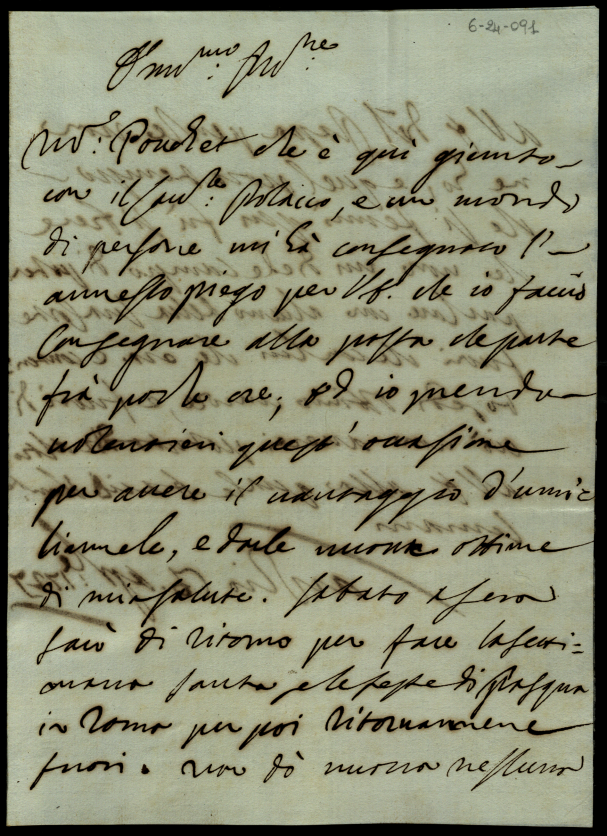 6-24-091
Mr: Pouchet che è qui giunto
con il Cav.re Polacco, e un mondo
di persone mi hà consegnato l'
annesso piego per VS. che io faccio
Consegnare alla posta che parte
frà poche ore; ed io prendo
volentieri quest' occasione
per avere il vantaggio d'umi=
liarmele, e darle nuove ottime
di mia salute. Sabato a sera
sarò di ritorno per fare la setti=
mana santa e le feste di Pasqua
in Roma per poi ritornarmene
fuori. non dò nuova nessuna